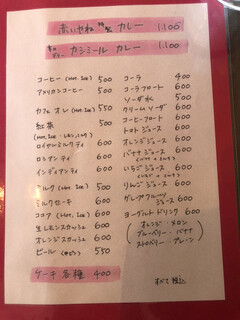 赤いやね 特製 カレー 1,100
カシミール カレー 1,100
コーヒー (Hot, Ice) 500
アメリカンコーヒー 500
カフェ オレ (Hot, Ice) 550
紅茶 500
(Hot, Ice・レモン, ミルク)
ロイヤルミルクティ 600
ロシアンティ 600
インディアンティ 600
ミルク (Hot, Ice) 500
ミルクセーキ 600
ココア (Hot, Ice) 600
生レモンスカッシュ 600
オレンジスカッシュ 600
ビール 550
ケーキ 各種 400
コーラ 400
コーラフロート 600
ソーダ水 500
クリームソーダ 600
コーヒーフロート 600
トマトジュース 600
オレンジジュース 600
バナナジュース 600
いちごジュース 600
りんごジュース 600
グレープフルーツ
ジュース 600
ヨーグルトドリンク 600
オレンジ・メロン
ブルーベリー・バナナ
ストロベリー・プレーン
すべて税込